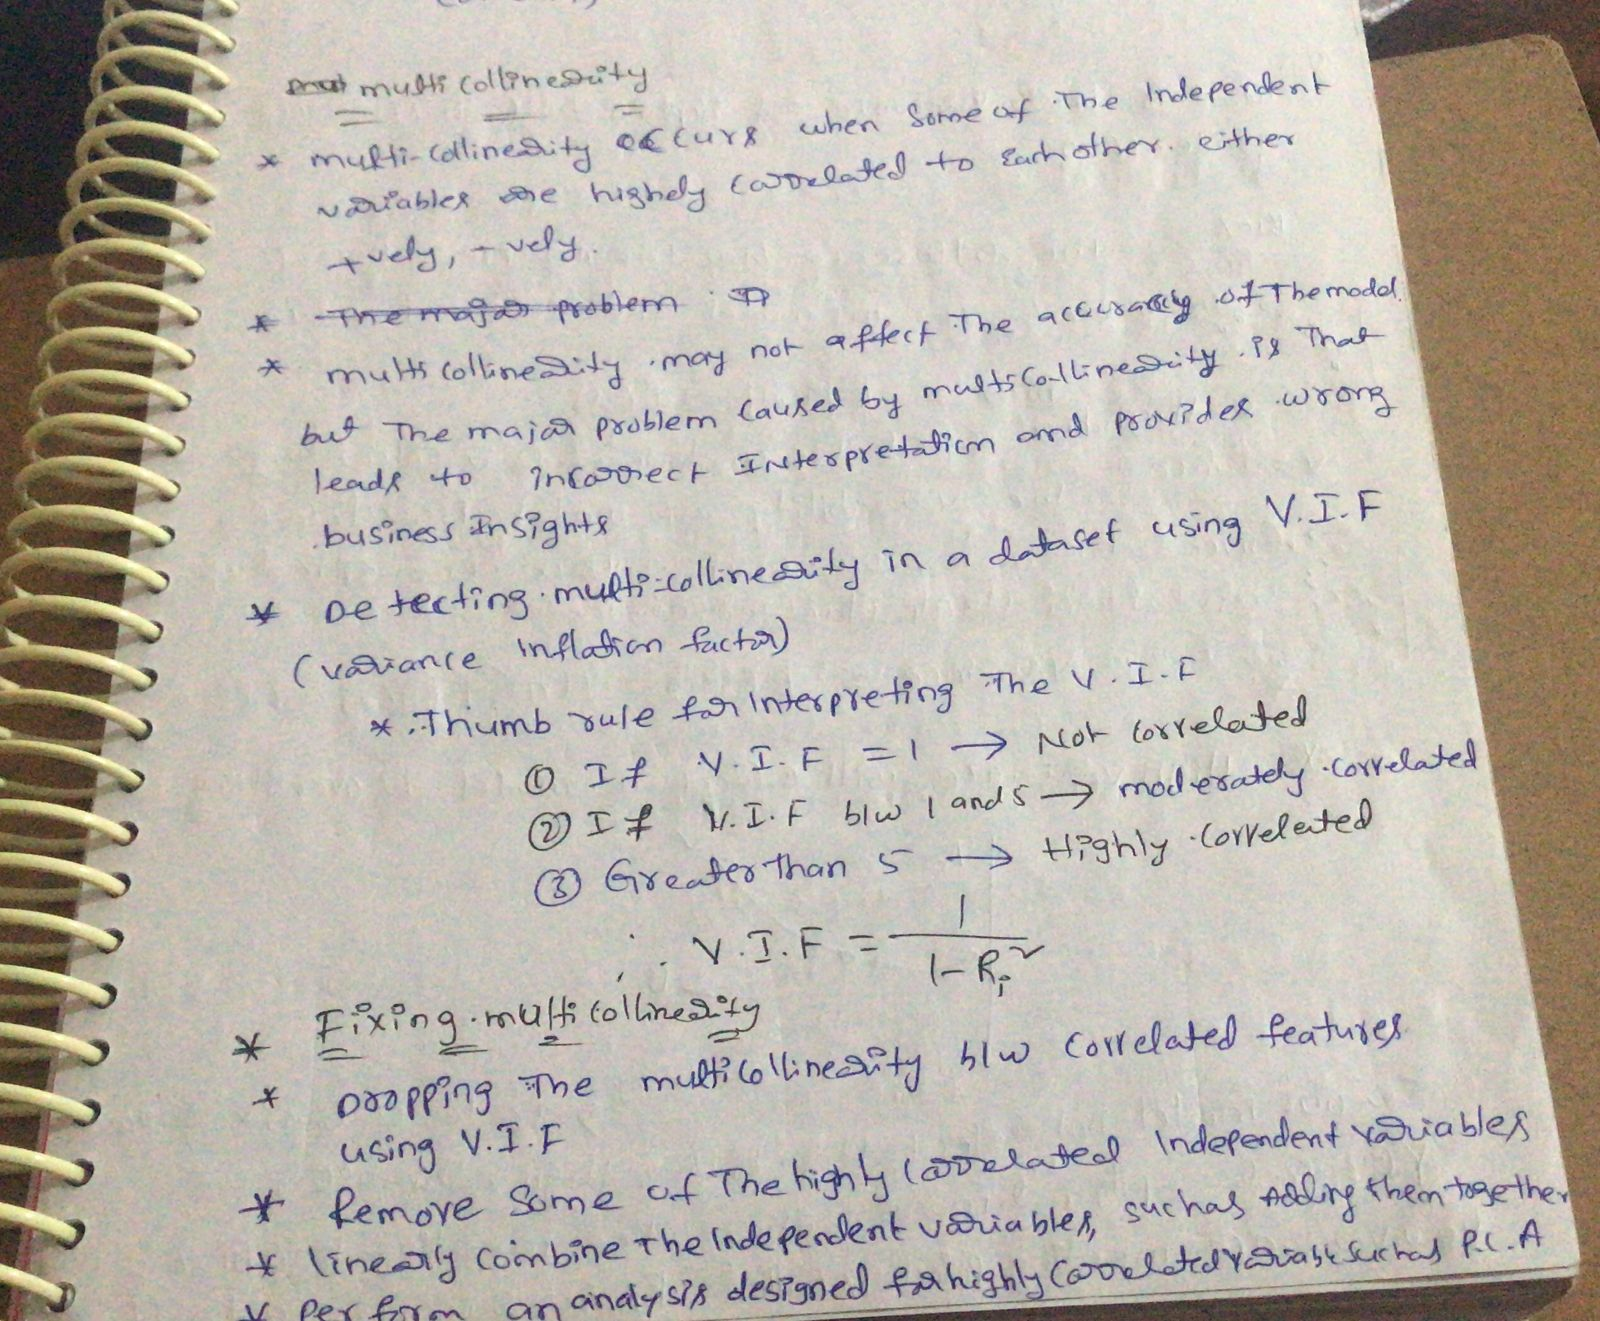 multi collinearity
* multi-collinearity occurs when some of The Independent
variables are highely correlated to Each other. either
+vely, -vely.
* The major problem
* multi collinearity may not affect The accuracy of The model.
but The major problem caused by multicollinearity is That
leads to incorrect Interpretation and provides wrong
business Insights
* Detecting multi-collinearity in a dataset using V.I.F
(variance inflation factor)
* Thumb rule for Interpreting The V.I.F
① If V.I.F = 1 → Not correlated
② If V.I.F b/w 1 and 5 → moderately correlated
③ Greater than 5 → Highly correlated
∴ V.I.F = 1 / 1-Ri²
* Fixing multi collinearity
* Dropping The multicollinearity b/w correlated features
using V.I.F
* Remove some of The highly correlated Independent variables
* linearly combine The Independent variables, such as Adding them together
* Perform an analysis designed for highly correlated variable such as P.C.A